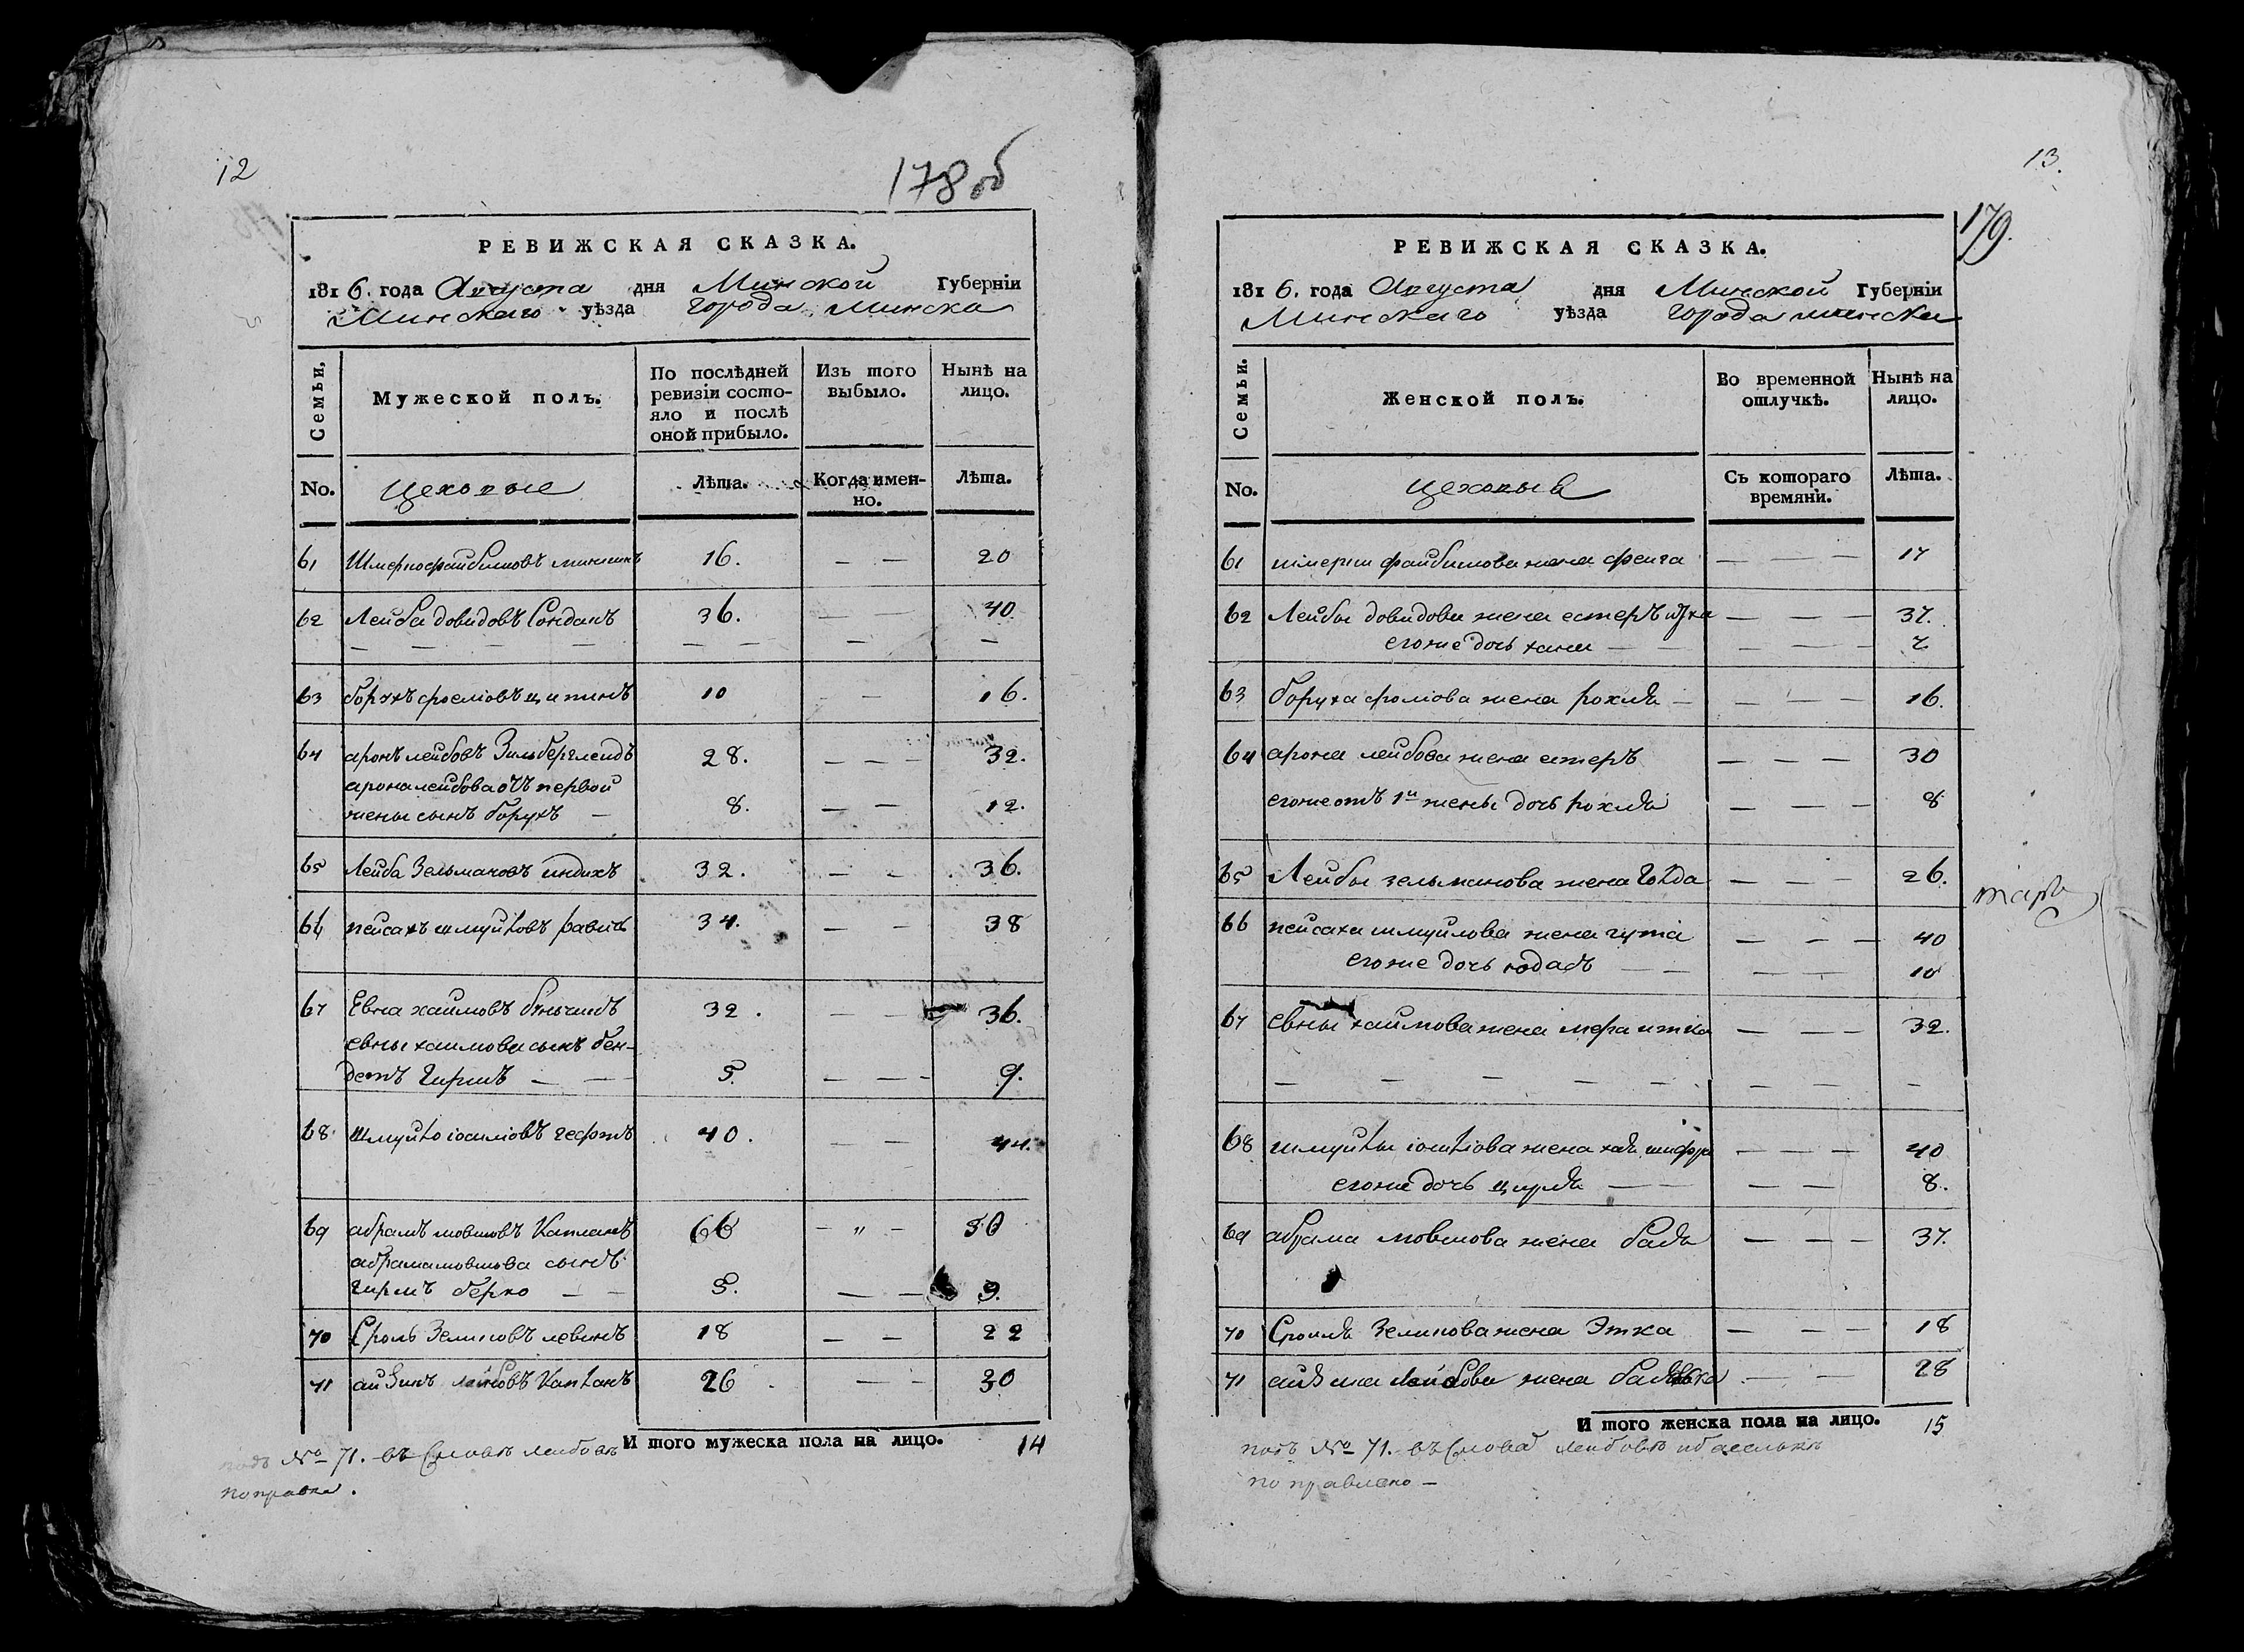 12
178 об
РЕВИЖСКАЯ СКАЗКА.
1816. года Августа дня Минской Губернiи
Минскаго уѣзда города Минска
Семьи, Мужеской полъ. По послѣдней ревизiи состояло и послѣ оной прибыло. Изъ того выбыло. Нынѣ на лицо.
No. Цеховые Лѣта. Когда именно. Лѣта.
61 Шмерко файбишовъ 16. — — 20
62 Лейба довидовъ 36. — — 40
— — — — — — — —
63 борухъ 10 — — 16.
64 аронъ лейбовъ Зильберглейдъ 28. — — — 32.
арона лейбова отъ первой
жены сынъ борухъ — 8. — — 12.
65 Лейба Зельмановъ индихъ 32. — — 36.
66 пейсахъ шмуйловъ равичъ 34. — — 38
67 Евна хаимовъ 32. — — 36.
евны хаимова сынъ бен-
детъ гиршъ — — 5. — — — 9.
68 Шмуйло гефтъ 40. — — 44.
69 абрамъ мовшовъ Капланъ 66 — „ — 50
абрама мовшова сынъ
гиршъ берко — — 5. — — 9.
70 Сроль Зелиговъ левинъ 18 — — 22
71 айзикъ лейбовъ Капланъ 26 — — 30
И того мужеска пола на лицо. 14
подъ № 71. въ словѣ лейбовъ
поправка.
13.
179.
РЕВИЖСКАЯ СКАЗКА.
1816. года Августа дня Минской Губернiи
Минскаго уѣзда города минска
Семьи. Женской полъ. Во временной отлучкѣ. Нынѣ на лицо.
No. цеховыя Съ котораго времяни. Лѣта.
61 шмерки файбишова жена фейга — — — 17
62 Лейбы довидова жена естеръ — — — 37.
его же дочь хана — — — — — 2
63 боруха жена рохля — — — — 16.
64 арона лейбова жена естеръ — — — 30
его же отъ 1й жены дочь рохля — — — 8
65 Лейбы зельманова жена голда — — — 26.
66 пейсаха шмуйлова жена гута — — — 40
его же дочь юдасъ — — — — 10
67 евны хаимова жена мера итка — — — 32.
— — — — — — — — —
68 шмуйлы жена хая шифра — — — 40
его же дочь цирля — — — — 8.
69 абрама мовшова жена бася — — — 37.
70 Сроля Зелигова жена Этка — — — 18
71 айзика лейбова жена — — 28
И того женска пола на лицо. 15
подъ № 71. въ слова лейбовъ
поправлено —